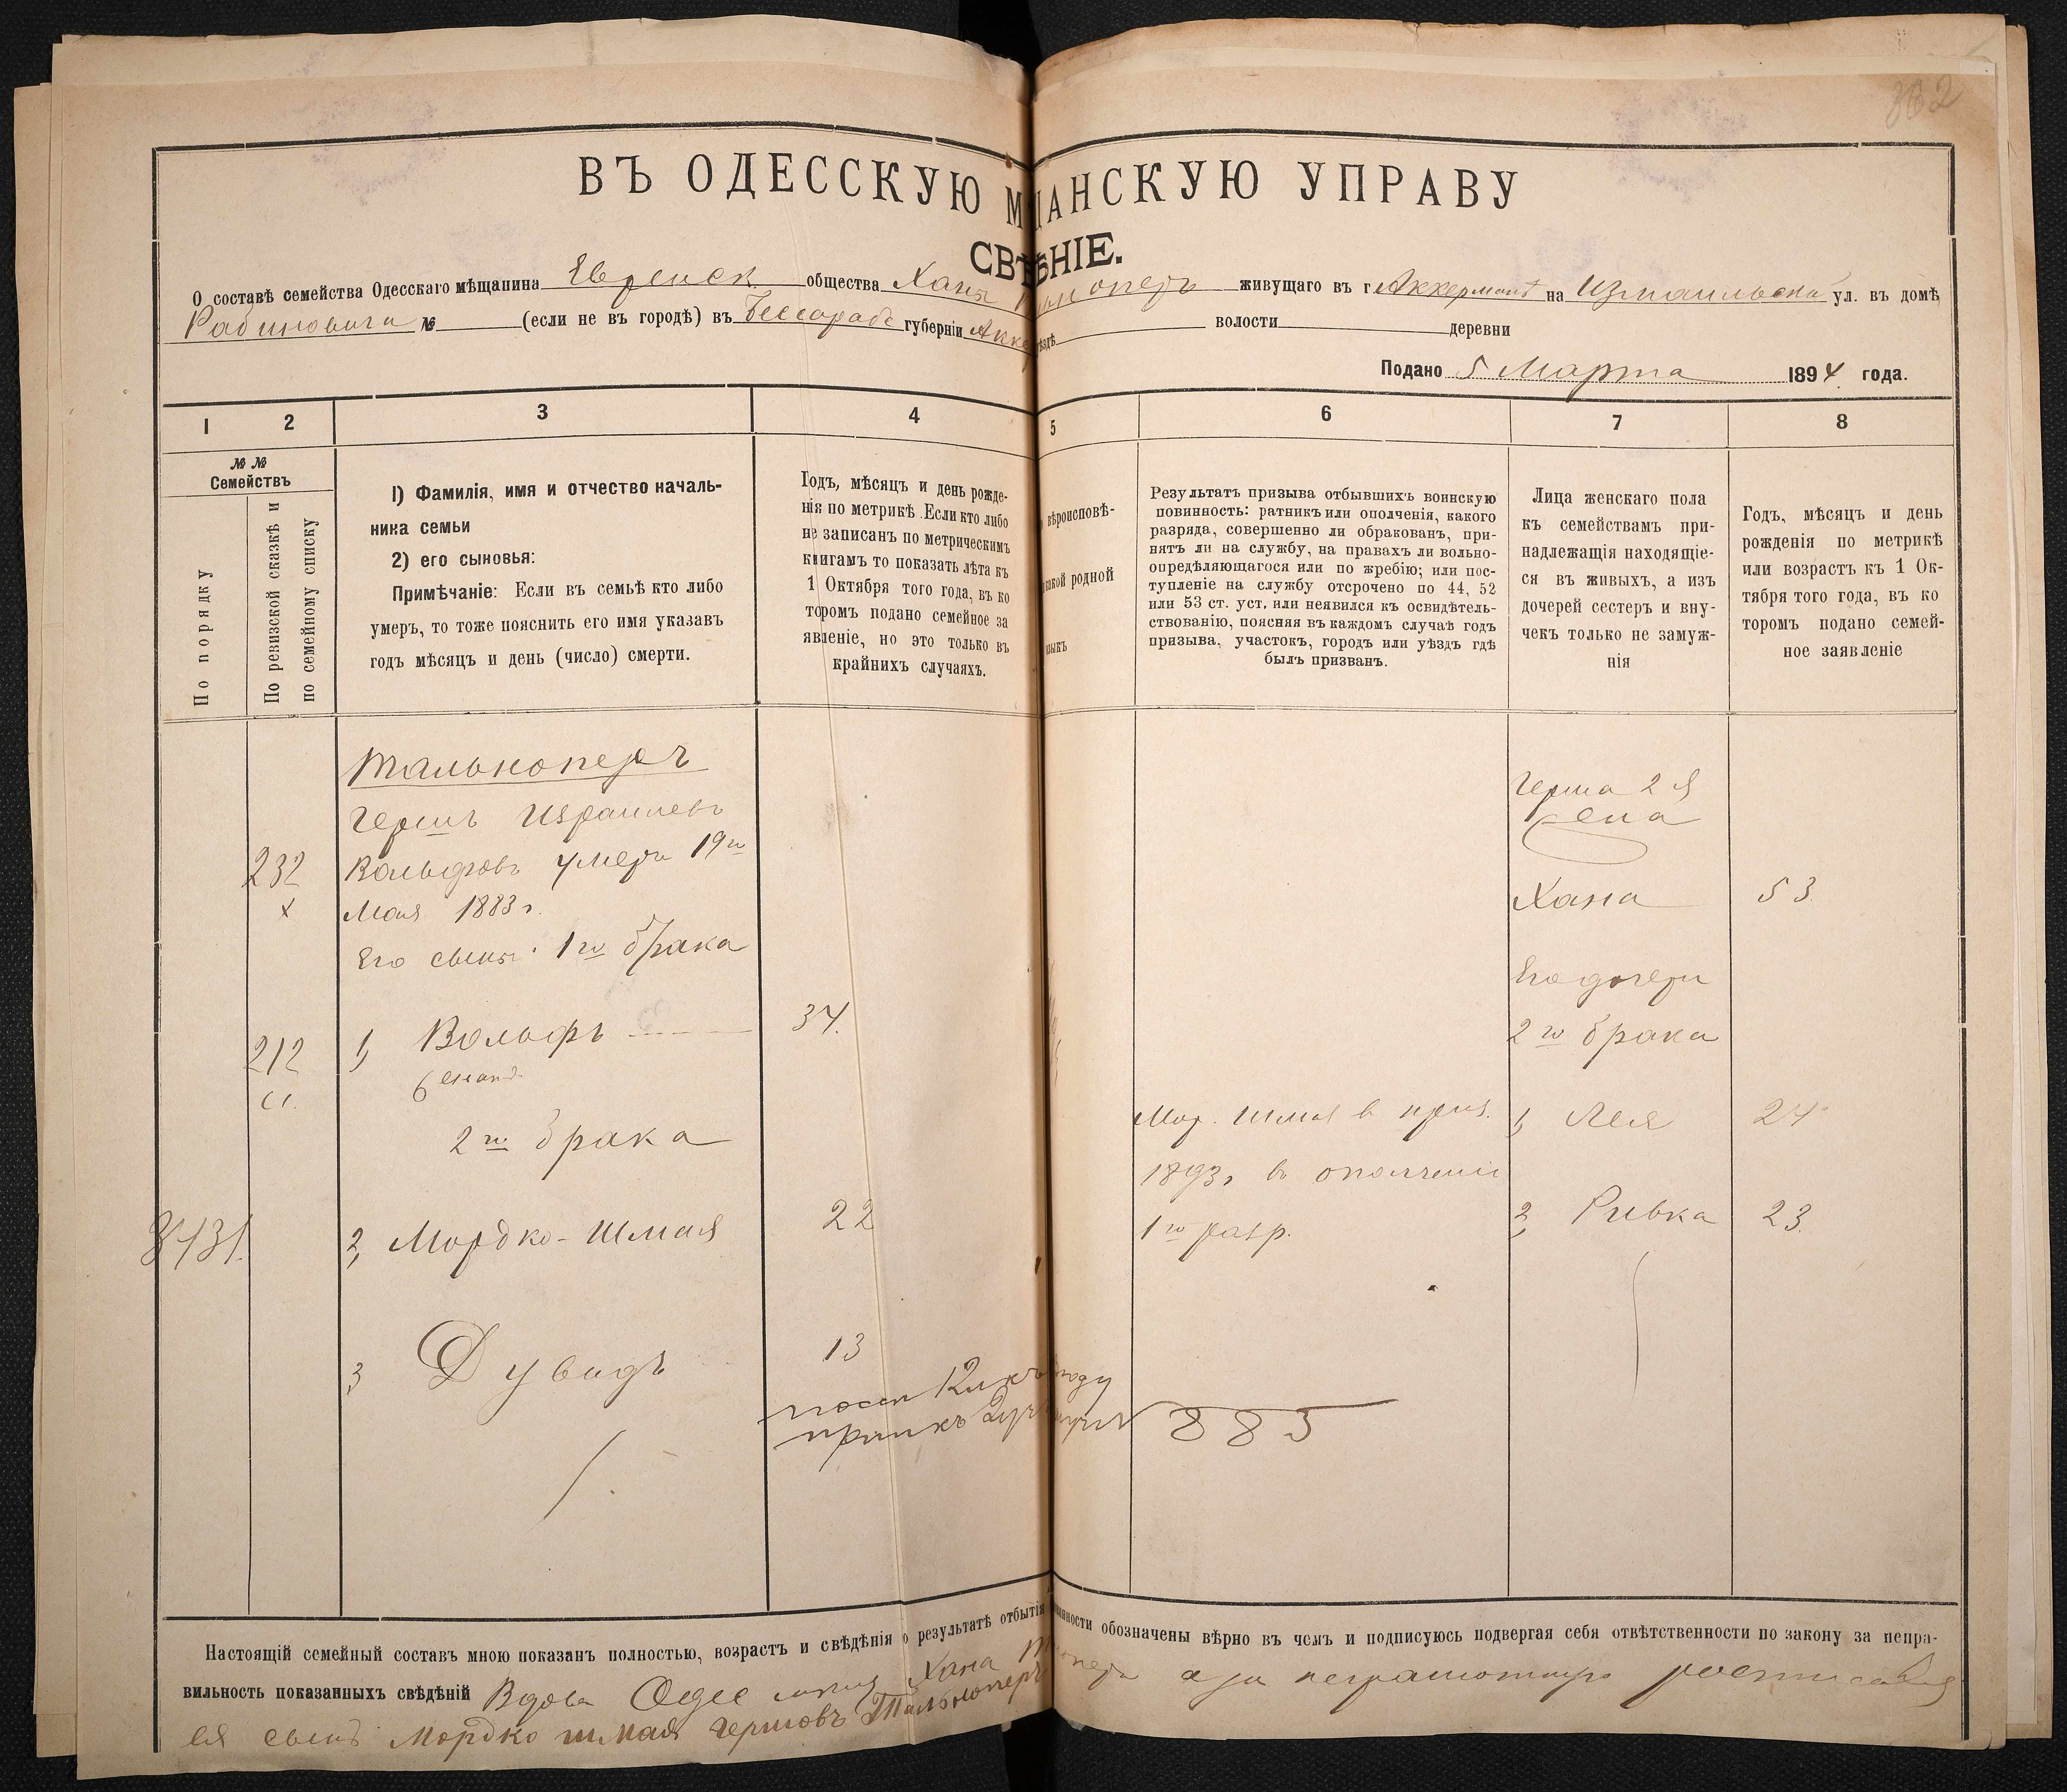 362
ВЪ ОДЕССКУЮ М ЩАНСКУЮ УПРАВУ
СВѢ ѢНІЕ.
О составѣ семейства Одесскаго мѣщанина Еврейск. общества Ханы оперъ живущаго въ г Аккерманѣ на Измаильской ул. въ домѣ
Рабиновича № (если не въ городѣ) въ Бессарабс губерніи Акке ѣздѣ волости деревни
Подано 5 Марта 1894 года.
1 2 3 4 5 6 7 8
№ №
Семействъ
По порядку
По ревизской сказкѣ и
по семейному списку
1) Фамилія, имя и отчество началь-
ника семьи
2) его сыновья:
Примѣчаніе: Если въ семьѣ кто либо
умеръ, то тоже пояснить его имя указавъ
годъ мѣсяцъ и день (число) смерти.
Годъ, мѣсяцъ и день рожде-
нія по метрикѣ. Если кто либо
не записанъ по метрическимъ
книгамъ то показать лѣта къ
1 Октября того года, въ ко
торомъ подано семейное за
явленіе, но это только въ
крайнихъ случаяхъ.
вѣроисповѣ-
какой родной
языкъ
Результатъ призыва отбывшихъ воинскую
повинность: ратникъ или ополченія, какого
разряда, совершенно ли обракованъ, при-
нятъ ли на службу, на правахъ ли вольно-
опредѣляющагося или по жребію; или пос-
тупленіе на службу отсрочено по 44, 52
или 53 ст. уст. или неявился къ освидѣтель-
ствованію, поясняя въ каждомъ случаѣ годъ
призыва, участокъ, городъ или уѣздъ гдѣ
былъ призванъ.
Лица женскаго пола
къ семействамъ при-
надлежащія находящіе-
ся въ живыхъ, а изъ
дочерей сестеръ и вну-
чекъ только не замуж-
нія
Годъ, мѣсяцъ и день
рожденія по метрикѣ
или возрастъ къ 1 Ок-
тября того года, въ ко
торомъ подано семей-
ное заявленіе
Тальноперъ
Гершъ Израилевъ
232 Вольфовъ умеръ 19го
х Мая 1883 г.
Его сыны: 1го брака
212 1, Вольфъ 34.
женатъ
2го брака
3431 2, Мордко-Шмая 22
3, Дувидъ 13
885
Мор. Шмая в приз.
1893 г в ополченіи
1го разр.
Герша 2я
жена
Хана 53.
Его дочери
2го брака
1, Лея 24
2, Ривка 23.
Настоящій семейный составъ мною показанъ полностью, возрастъ и свѣдѣнія о результатѣ отбытія инности обозначены вѣрно въ чемъ и подписуюсь подвергая себя отвѣтственности по закону за непра-
вильность показанныхъ свѣдѣній Вдова Хана а за неграмотную росписался
ея сынъ Мордко шмая Гершовъ Тальноперъ